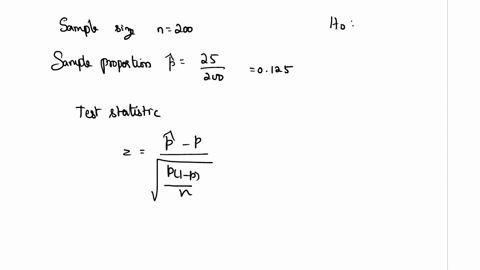 Sample size n=200
H₀ :
Sample proportion p̂ = 25/200 = 0.125
Test statistic
z = (p̂ - p) / √(p(1-p)/n)